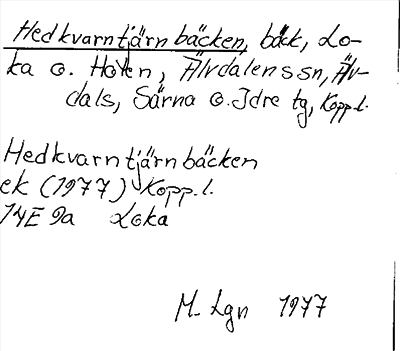 Hedkvarntjärnbäcken, bäck, Lo-
ka o. Hoten, Älvdalens sn, Älv-
dals, Särna o. Idre tg, Kopp. l.
Hedkvarntjärnbäcken
ek (1977) Kopp. l.
14E 9a Loka
M. Lgn 1977